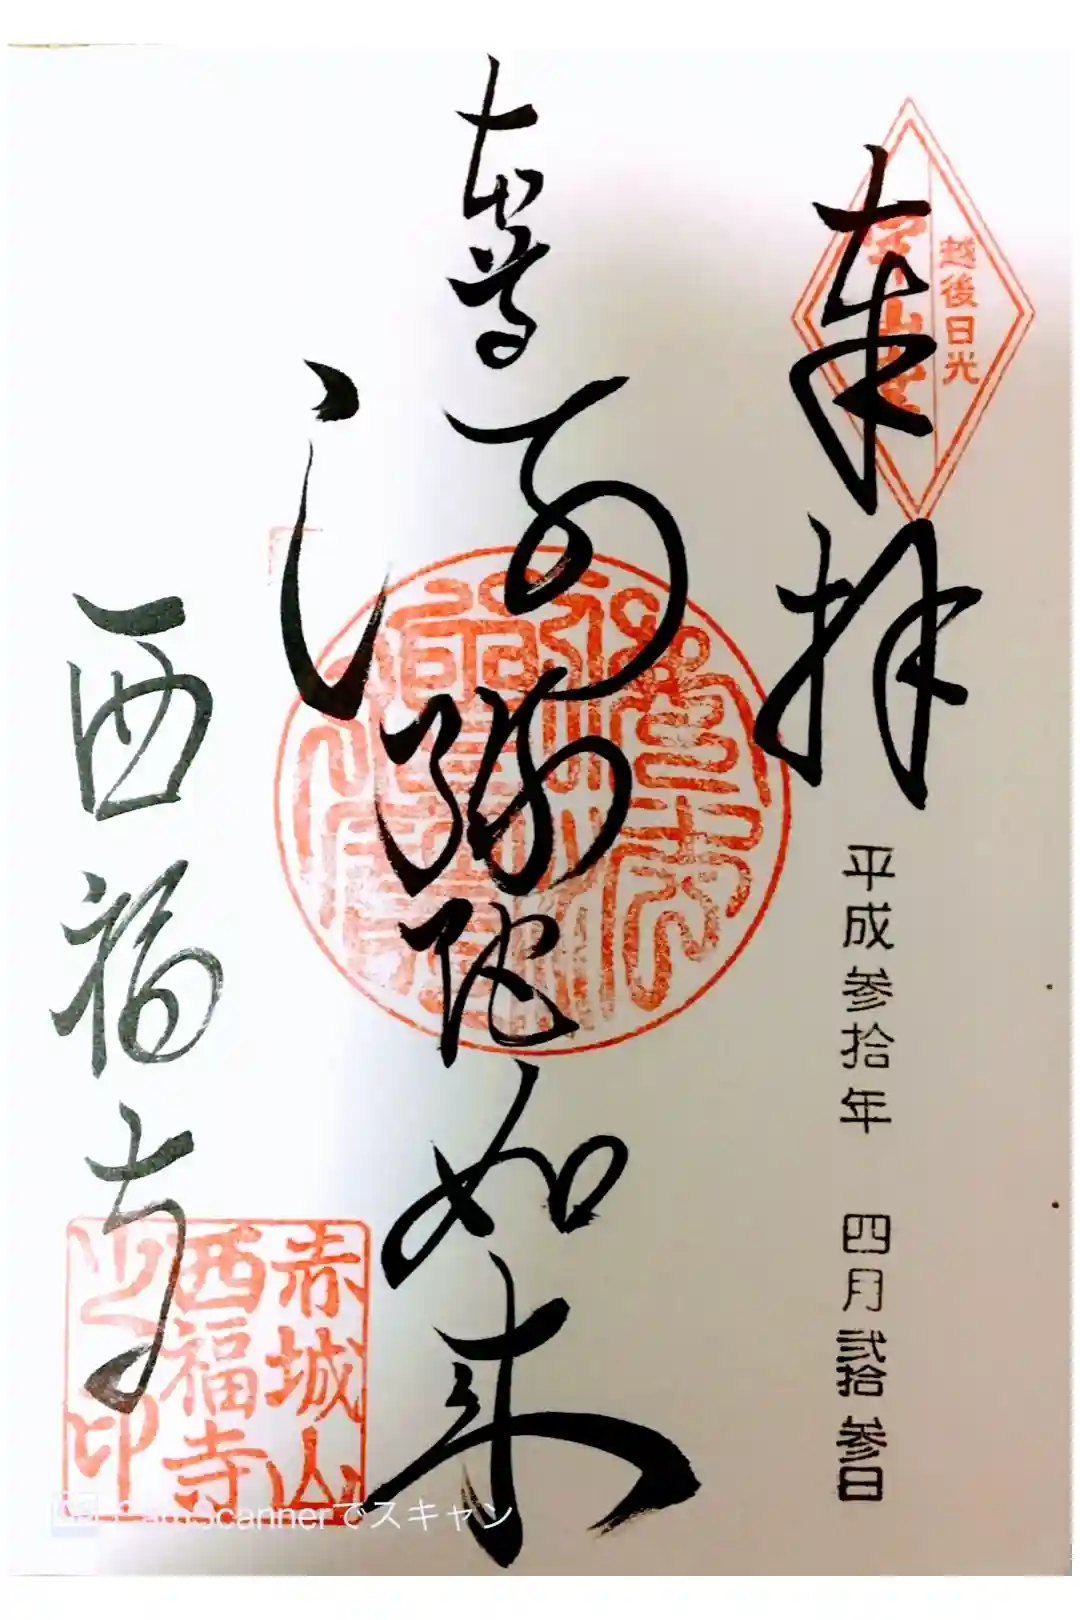 越後日光
開山堂
奉拝
平成参拾年 四月弐拾参日
本尊 阿弥陀如来
西福寺
赤城山
西福寺
之印
CamScannerでスキャン